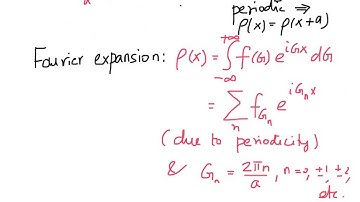 periodic ⇒
ρ(x) = ρ(x+a)
Fourier expansion: ρ(x) = ∫_{-∞}^{+∞} f(G) e^{iGx} dG
= Σ_n f_{G_n} e^{iG_n x}
(due to periodicity)
& G_n = 2πn/a, n=0, ±1, ±2,
etc.